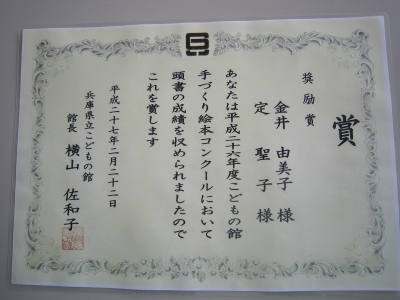 賞
奨励賞
金井 由美子 様
定 聖子 様
あなたは平成二十六年度こどもの館
手づくり絵本コンクールにおいて
頭書の成績を収められましたので
これを賞します
平成二十七年二月二十二日
兵庫県立こどもの館
館長 横山 佐和子